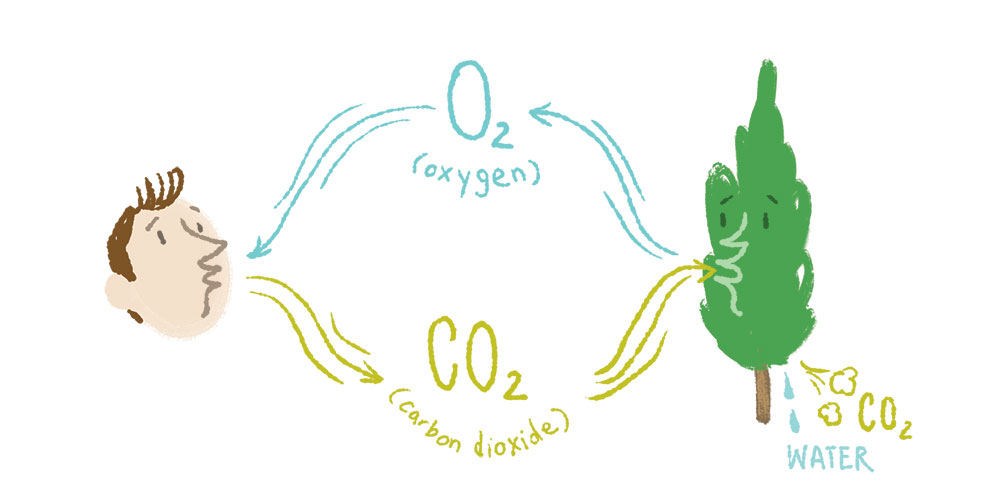 O₂
(oxygen)
CO₂
(carbon dioxide)
CO₂
WATER